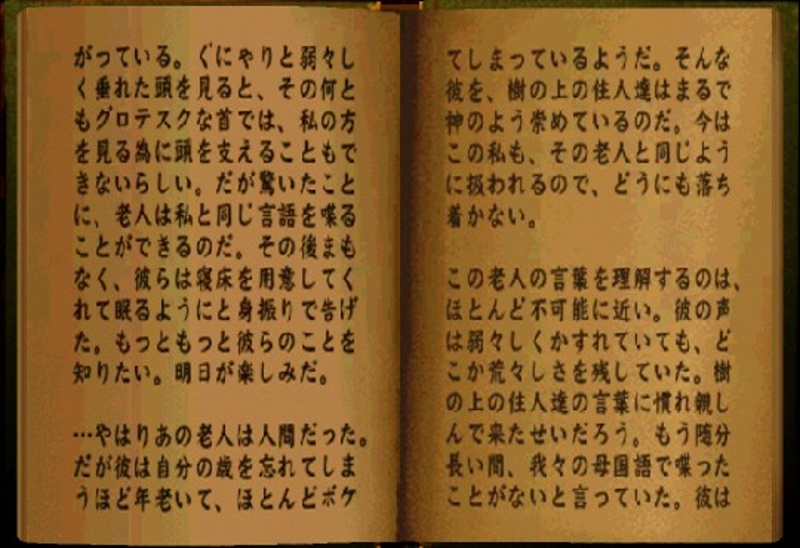 がっている。ぐにゃりと弱々し
く垂れた頭を見ると、その何と
もグロテスクな首では、私の方
を見る為に頭を支えることもで
きないらしい。だが驚いたこと
に、老人は私と同じ言語を喋る
ことができるのだ。その後まも
なく、彼らは寝床を用意してく
れて眠るようにと身振りで告げ
た。もっともっと彼らのことを
知りたい。明日が楽しみだ。
…やはりあの老人は人間だった。
だが彼は自分の歳を忘れてしま
うほど年老いて、ほとんどボケ
てしまっているようだ。そんな
彼を、樹の上の住人達はまるで
神のよう崇めているのだ。今は
この私も、その老人と同じよう
に扱われるので、どうにも落ち
着かない。
この老人の言葉を理解するのは、
ほとんど不可能に近い。彼の声
は弱々しくかすれていても、ど
こか荒々しさを残していた。樹
の上の住人達の言葉に慣れ親し
んで来たせいだろう。もう随分
長い間、我々の母国語で喋った
ことがないと言っていた。彼は